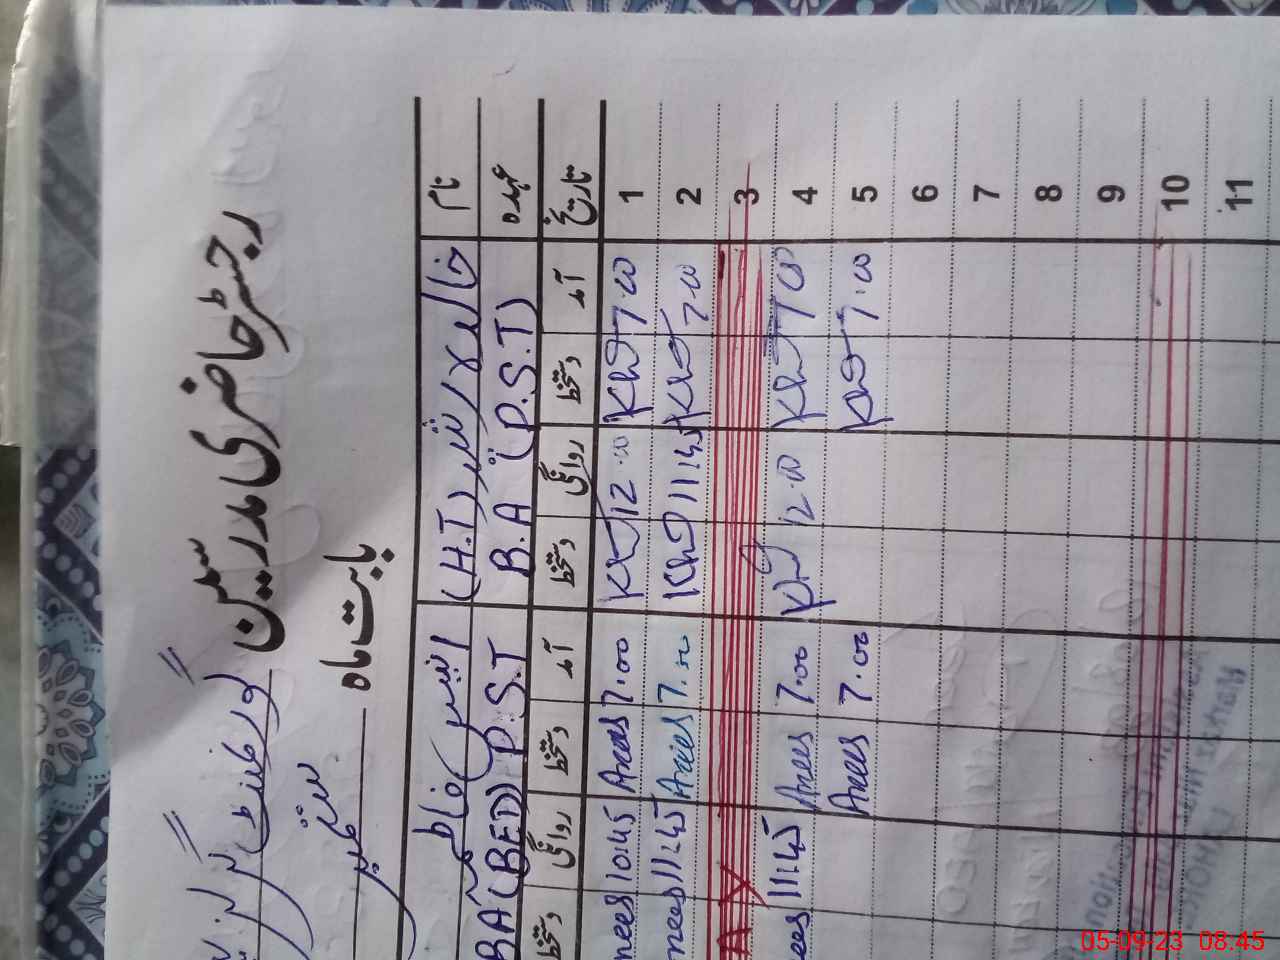 رجسٹر حاضری مدرسین گورنمنٹ گرلز
بابت ماہ ستمبر
نام خالدہ رشید (H.T) انیس فاطمہ
عہدہ B.A (P.S.T) BA (BED) P.S.T
تاریخ آمد دستخط روانگی دستخط آمد دستخط روانگی دستخط
1 7.00 Kh 12.00 Kh 7.00 Anees 10:45 nees
2 7.00 Kh 11:45 Kh 7.00 Anees 11:45 nees
3 A Y
4 7.00 Kh 12.00 Kh 7.00 Anees 11:45 ees
5 7.00 Kh 7.00 Anees
6
7
8
9
10
11
05-09-23 08:45